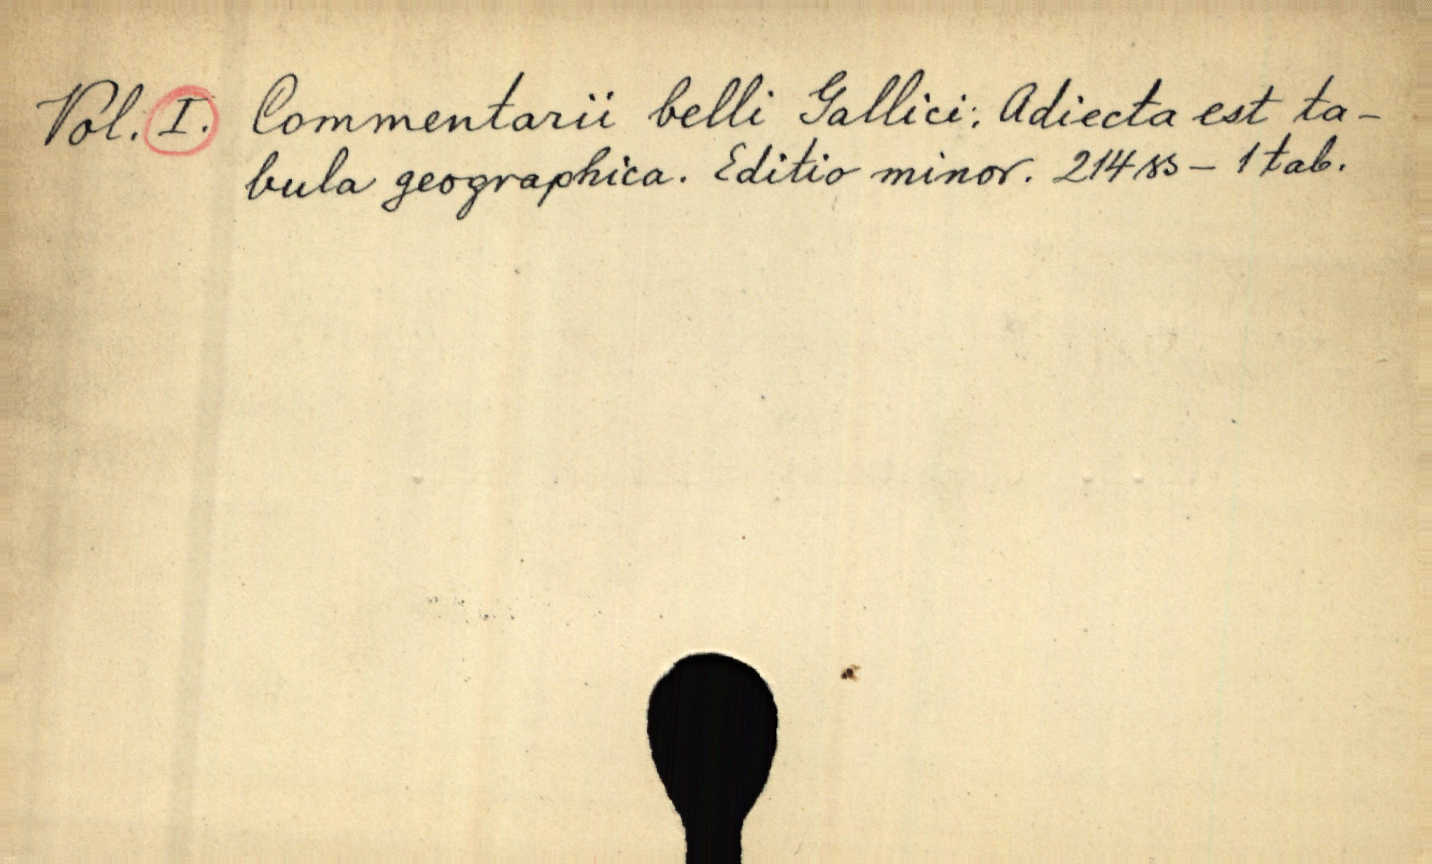 Vol. I. Commentarii belli Gallici; Adiecta est ta-
bula geographica. Editio minor. 214 ss – 1 tab.